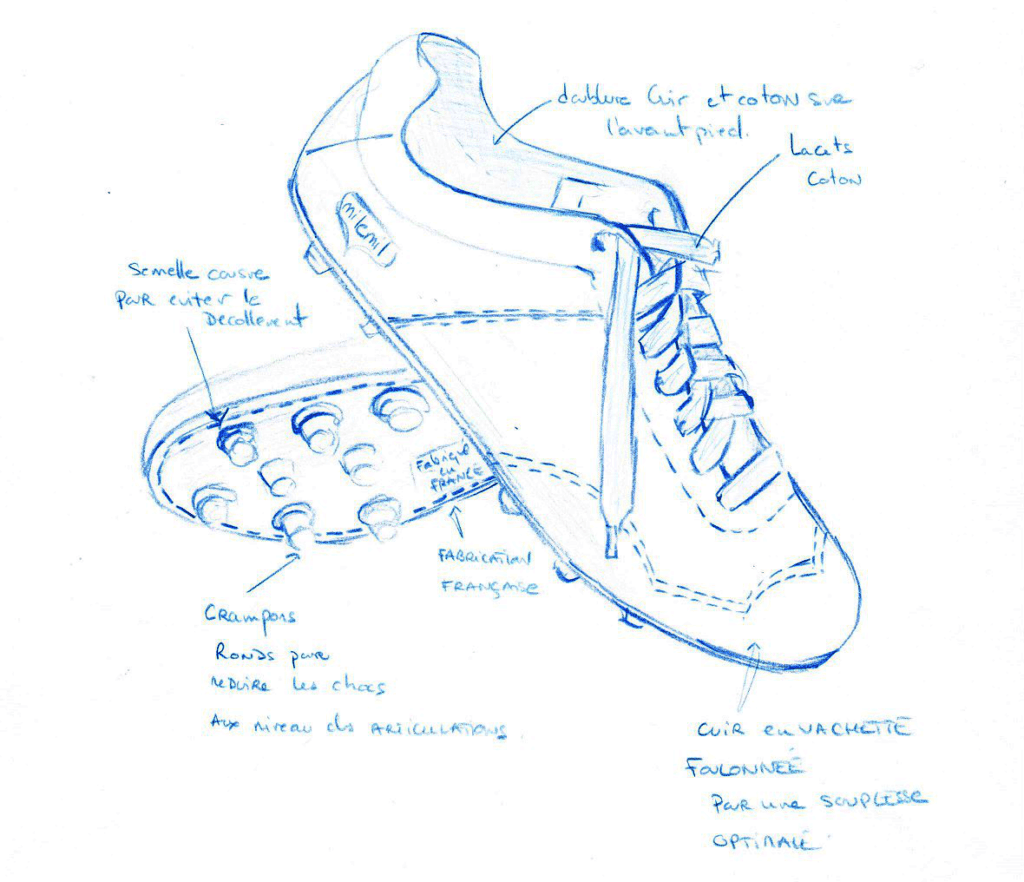 doublure Cuir et coton sur
l'avant pied.
Lacets
Coton
milemil
Semelle cousue
Pour eviter le
Decollement
Fabriqué
en
FRANCE
FABRICATION
FRANÇAISE
Crampons
RONDS pour
REDUIRE les chocs
Aux niveau des ARTICULATIONS
CUIR en VACHETTE
FOULONNEÉ
POUR une SOUPLESSE
OPTIMALE